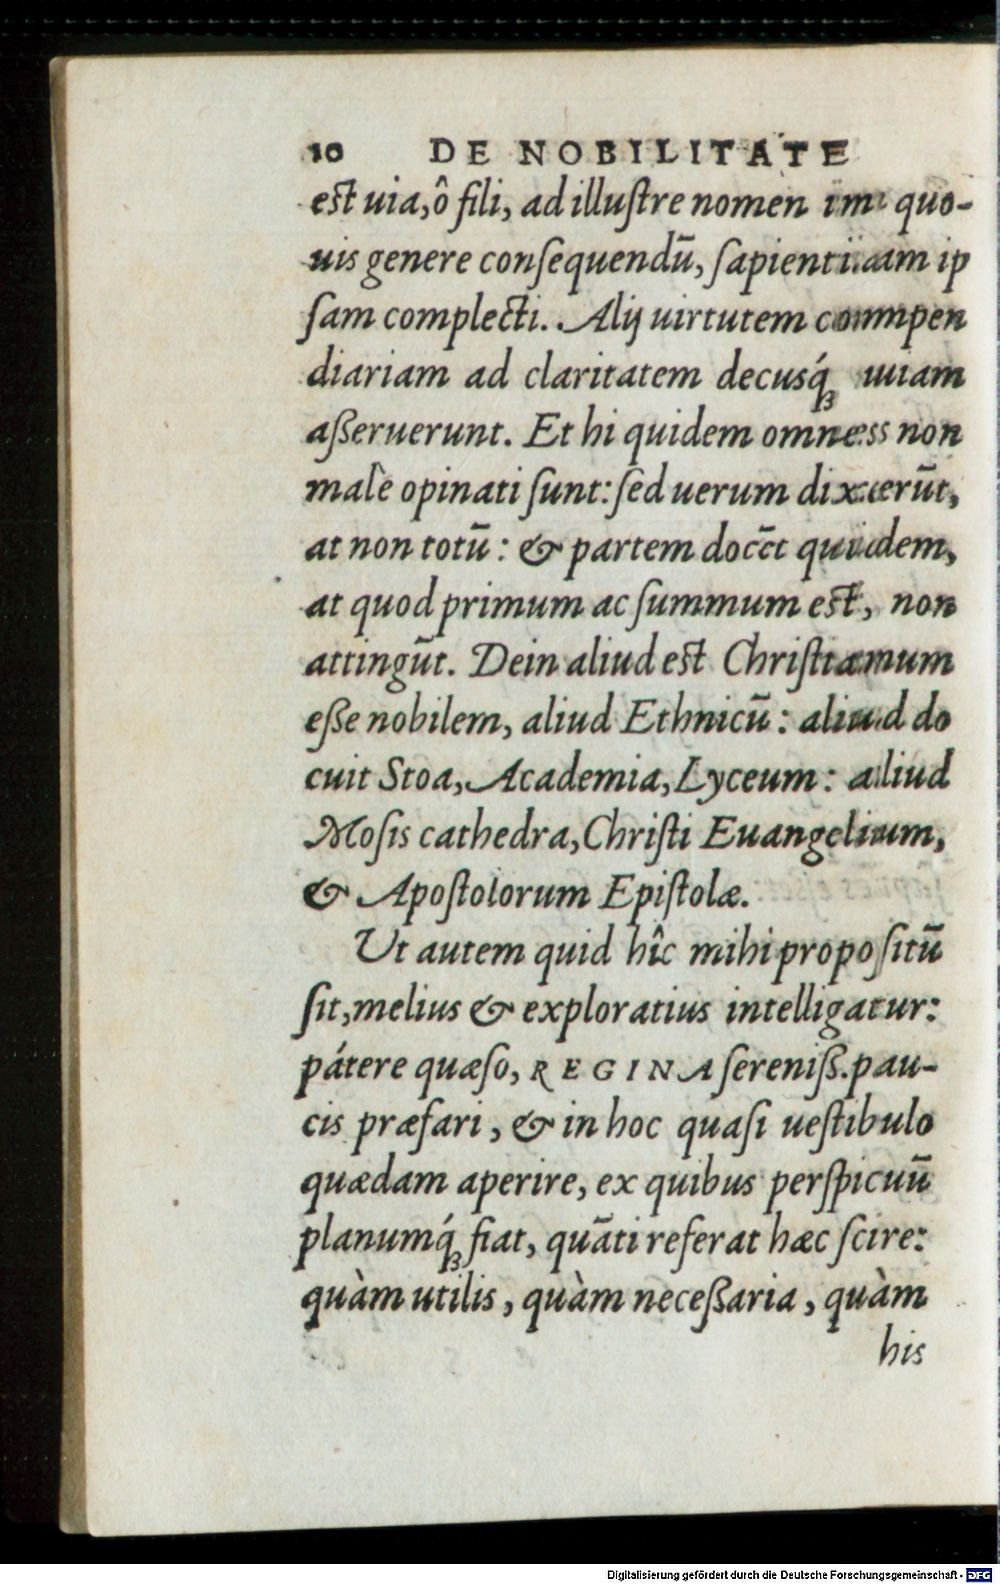 10 DE NOBILITATE
est uia, ô fili, ad illustre nomen in quo-
uis genere consequendū, sapientiam ip
sam complecti. Alij uirtutem compen
diariam ad claritatem decusq́ꝫ uiam
asseruerunt. Et hi quidem omnes non
malè opinati sunt: sed uerum dixerūt,
at non totū: & partem docēt quidem,
at quod primum ac summum est, non
attingūt. Dein aliud est Christianum
esse nobilem, aliud Ethnicū: aliud do
cuit Stoa, Academia, Lyceum: aliud
Mosis cathedra, Christi Euangelium,
& Apostolorum Epistolæ.
Ut autem quid hîc mihi propositū
sit, melius & exploratius intelligatur:
pátere quæso, REGINA sereniss. pau-
cis præfari, & in hoc quasi uestibulo
quædam aperire, ex quibus perspicuū
planumq́ꝫ fiat, quāti referat hæc scire:
quàm utilis, quàm necessaria, quàm
his
Digitalisierung gefördert durch die Deutsche Forschungsgemeinschaft - DFG